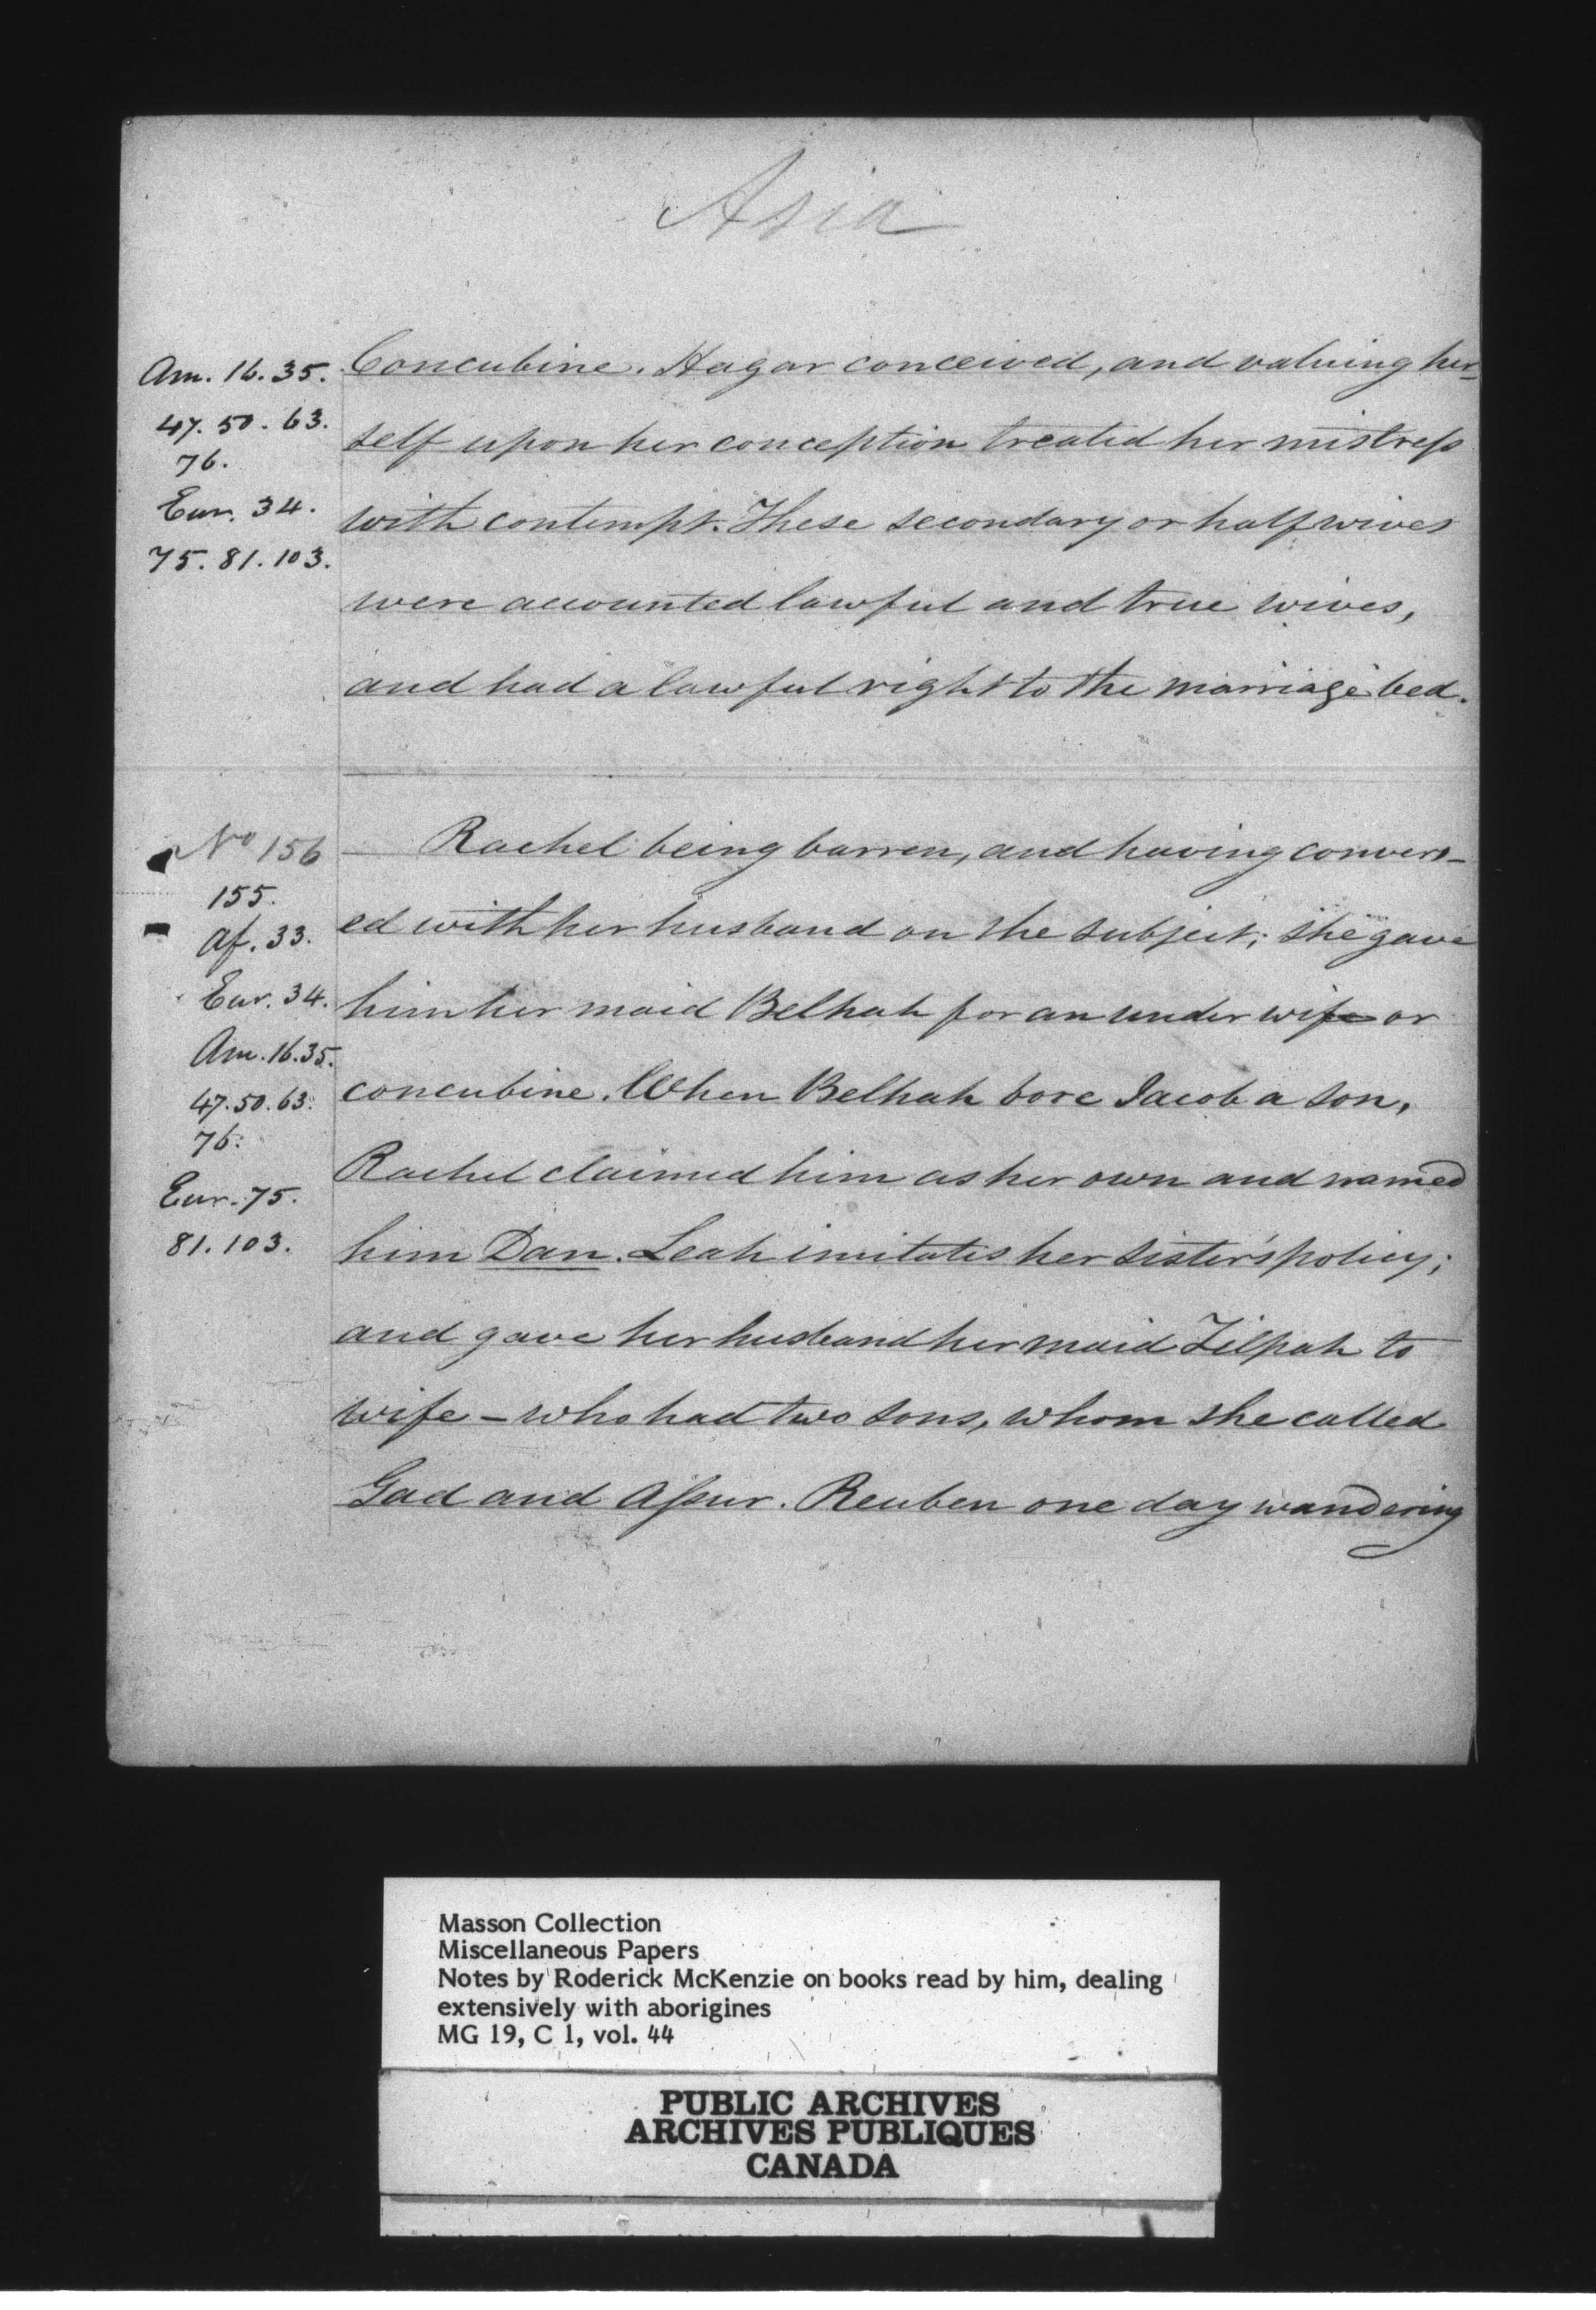 Asia
Am. 16. 35.
47. 50. 63.
76.
Eur. 34.
75. 81. 103.
Concubine. Hagar conceived, and valuing her-
self upon her conception treated her mistress
with contempt. These secondary or half wives
were accounted lawful and true wives,
and had a lawful right to the marriage bed.
No 156
155.
Af. 33.
Eur. 34.
Am. 16. 35.
47. 50. 63.
76.
Eur. 75.
81. 103.
Rachel being barren, and having convers-
ed with her husband on the subject; she gave
him her maid Belhah for an under wife or
concubine. When Belhah bore Jacob a son,
Rachel claimed him as her own and named
him Dan. Leah imitates her sister's policy;
and gave her husband her maid Zilpah to
wife - who had two sons, whom she called
Gad and Assur. Reuben one day wandering
Masson Collection
Miscellaneous Papers
Notes by Roderick McKenzie on books read by him, dealing
extensively with aborigines
MG 19, C 1, vol. 44
PUBLIC ARCHIVES
ARCHIVES PUBLIQUES
CANADA